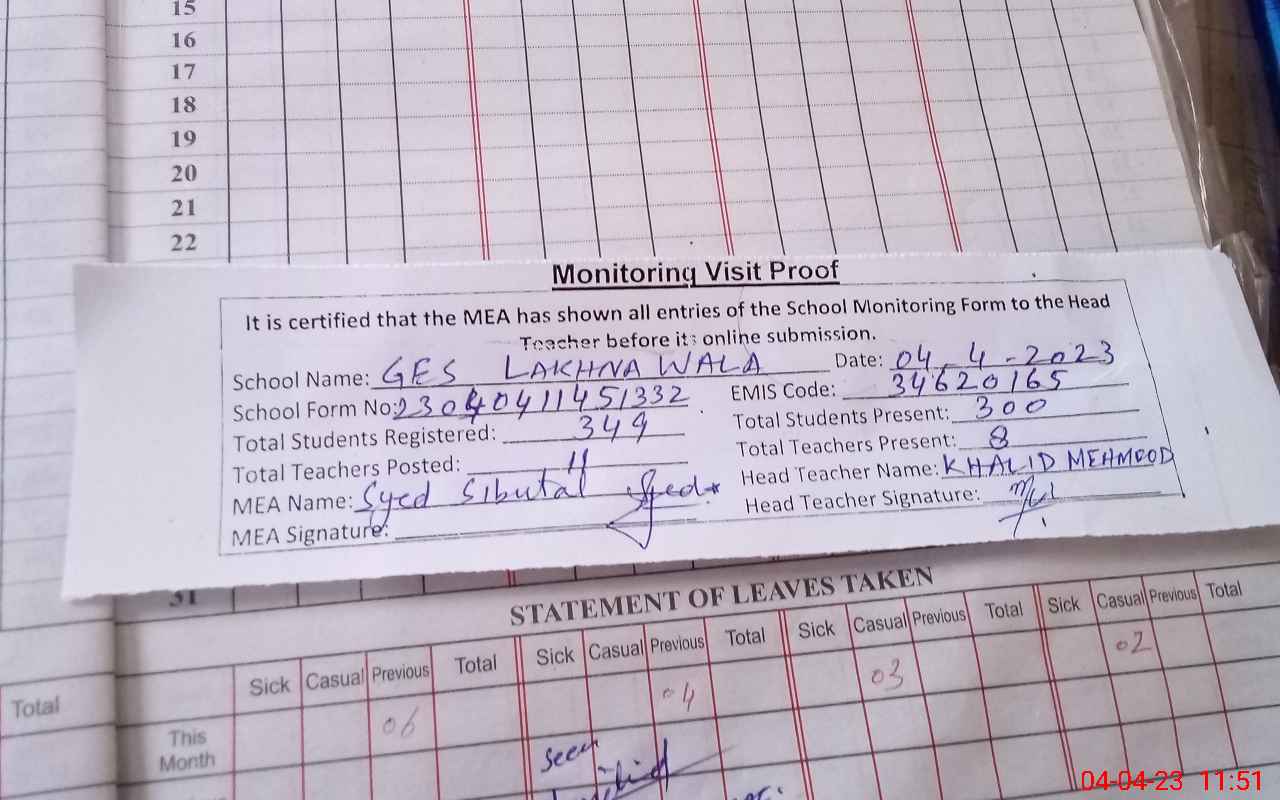 15
16
17
18
19
20
21
22
Monitoring Visit Proof
It is certified that the MEA has shown all entries of the School Monitoring Form to the Head
Teacher before its online submission.
School Name: GES LAKHNA WALA Date: 04-4-2023
School Form No: 23040411451332 EMIS Code: 34620165
Total Students Registered: 349 Total Students Present: 300
Total Teachers Posted: 11 Total Teachers Present: 8
MEA Name: Syed Sibutal Syed Head Teacher Name: KHALID MEHMOOD
MEA Signature: Head Teacher Signature:
31
STATEMENT OF LEAVES TAKEN
Sick Casual Previous Total Sick Casual Previous Total Sick Casual Previous Total Sick Casual Previous Total
Total
This Month 06 04 03 02
seen
04-04-23 11:51